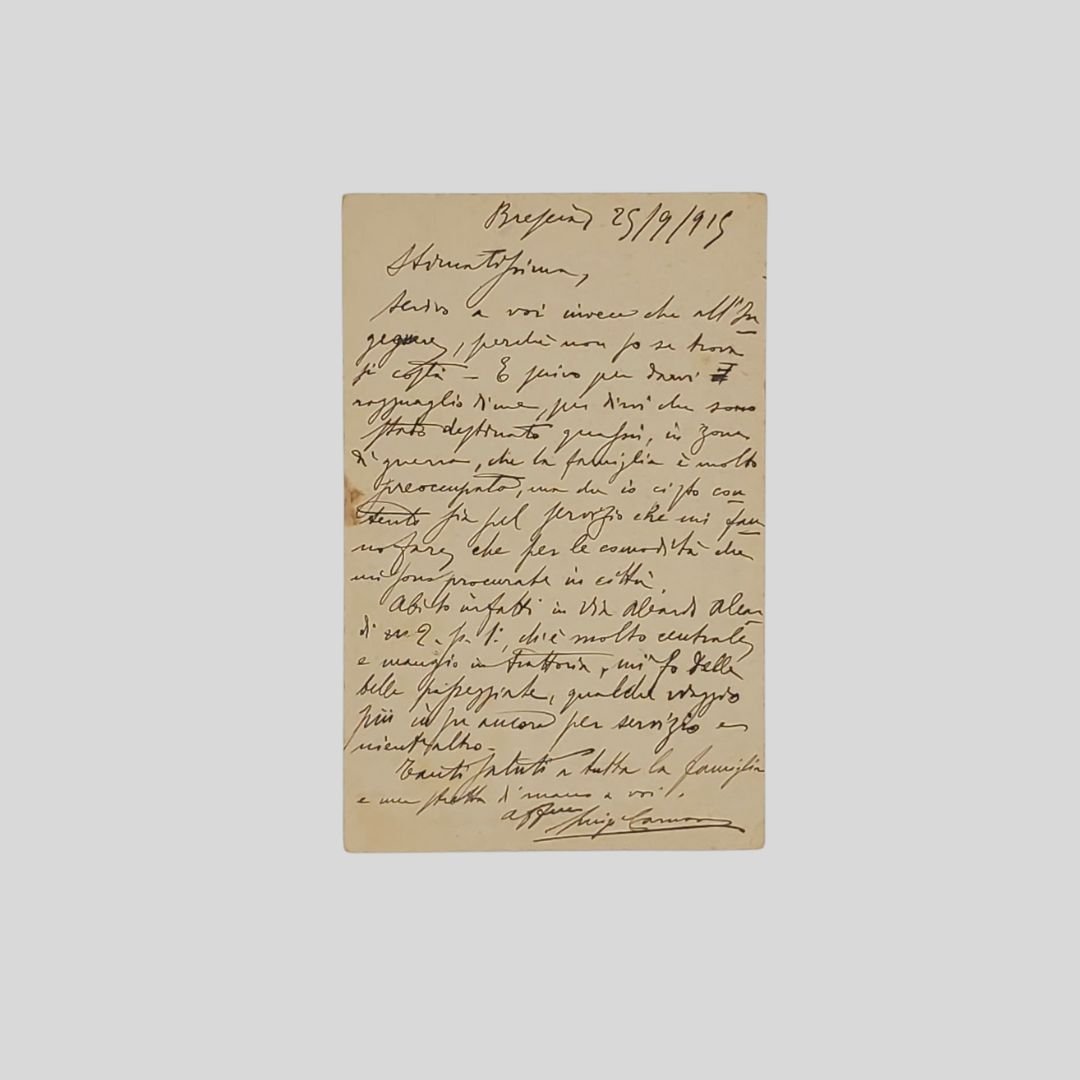 Brescia, 25/9/915
Stimatissima,
scrivo a voi invece che all'In
gegnere, perchè non so se trova
si costà - E scrivo per darvi
ragguaglio di me, per dirvi che sono
stato destinato quassù, in zona
di guerra, che la famiglia è molto
preoccupata, ma che io ci sto con
tento sia pel servizio che mi fan
no fare, che per le comodità che
mi sono procurate in città.
Abito infatti in Via Aleardo Alear
di n. 2. p. 1°, ch'è molto centrale,
e mangio in trattoria, mi fo delle
belle passeggiate, qualche viaggio
più in su ancora per servizio e
nient'altro -
Tanti saluti a tutta la famiglia
e una stretta di mano a voi.
affmo Luigi